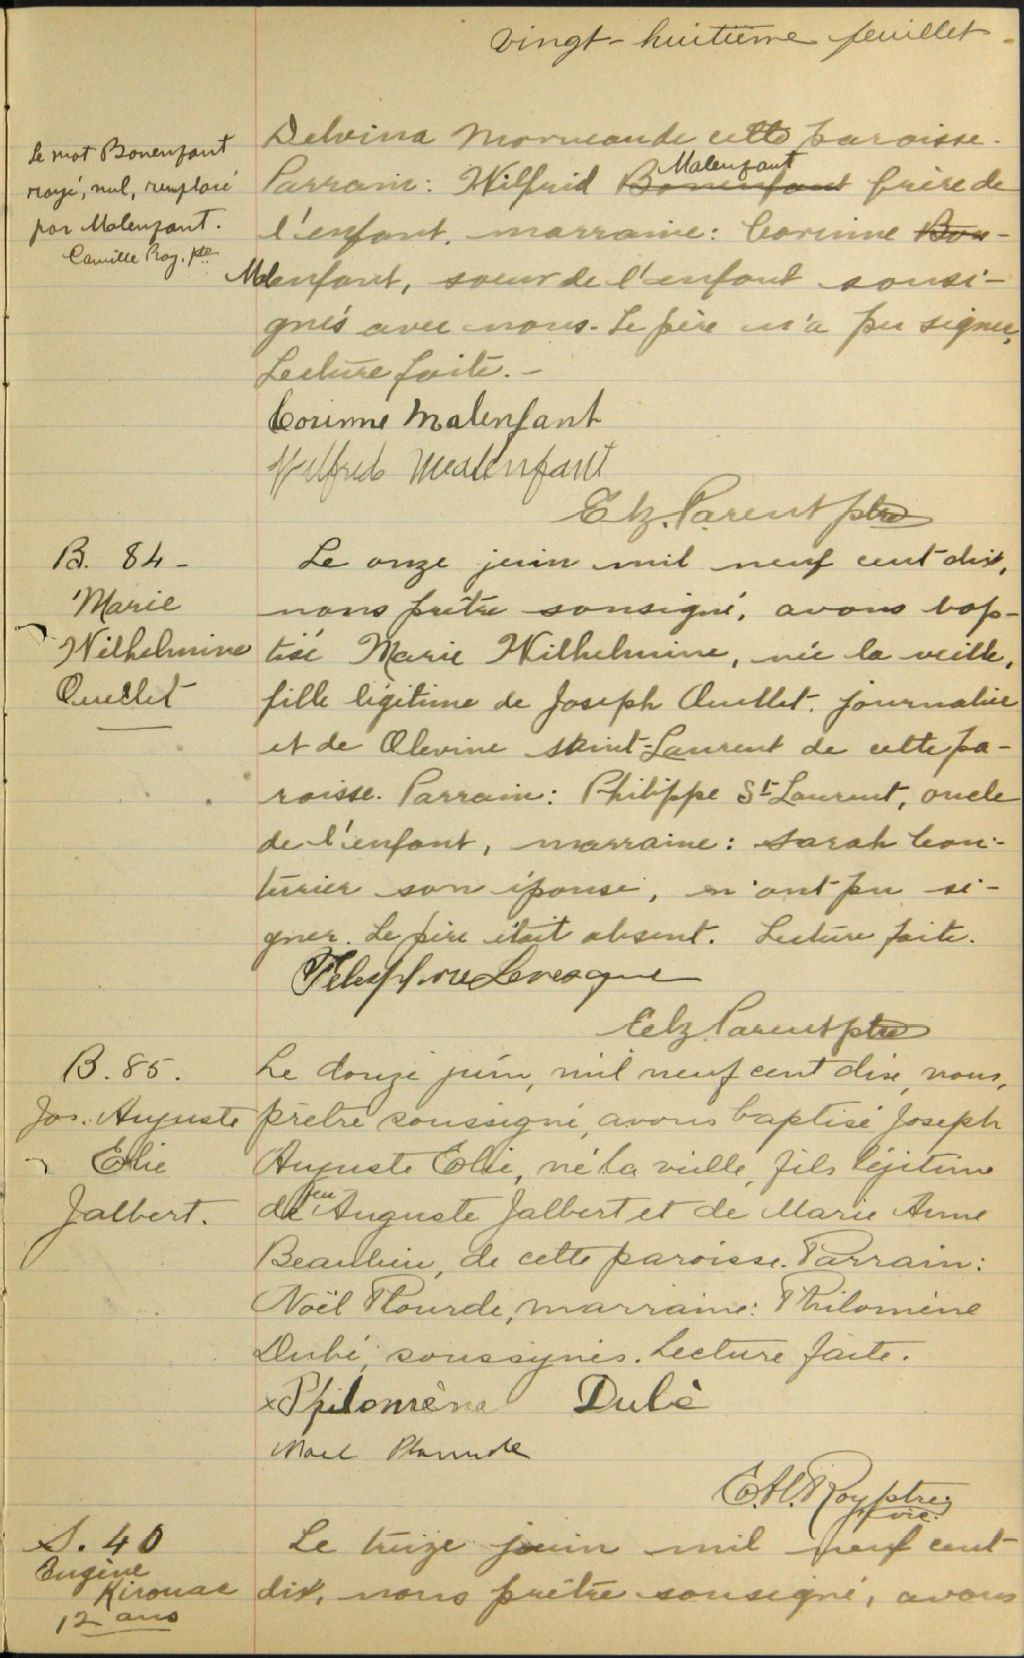 vingt-huitième feuillet.
Le mot Bonenfant
rayé, nul, remplacé
par Malenfant.
Camille Roy. ptre
Delvina Morneau de cette paroisse.
Malenfant
Parrain: Wilfrid Bonenfant frère de
l'enfant. marraine: Corinne Bon-
Malenfant, soeur de l'enfant sousi-
gnés avec nous. Le père n'a pu signer,
Lecture faite. -
Corinne Malenfant
Wilfrid Malenfant
Elz. Parent ptre
B. 84 -
Marie
Wilhelmine
Ouellet
Le onze juin mil neuf cent dix,
nous prêtre sousigné, avons bap-
tisé Marie Wilhelmine, née la veille,
fille légitime de Joseph Ouellet. journalier
et de Olevine Saint-Laurent de cette pa-
roisse. Parrain: Philippe St Laurent, oncle
de l'enfant, marraine: Sarah Cou-
turier son épouse, n'ont pu si-
gner. Le père était absent. Lecture faite.
Telesphore Levesque
Elz Parent ptre
B. 85.
Jos. Auguste
Elie
Jalbert.
Le douze juin, mil neuf cent dix, nous,
prêtre soussigné, avons baptisé Joseph
Auguste Elie, né la veille, fils légitime
de feu Auguste Jalbert et de Marie Anne
Beaulieu, de cette paroisse. Parrain:
Noël Plourde, marraine: Philomène
Dubé, soussignés. Lecture faite.
x Philomène Dubé
Noel Plourde
C. A. Roy ptre,
vic.
S. 40
Eugène
Kirouac
12 ans
Le treize juin mil neuf cent
dix, nous prêtre sousigné, avons